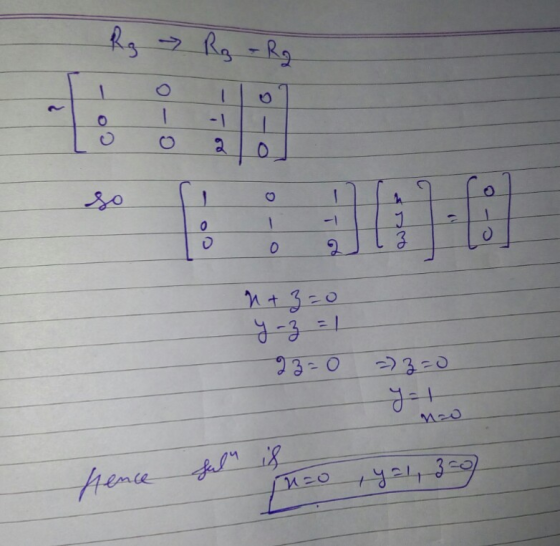 R₃ → R₃ - R₂
~ [ 1 0 1 | 0
0 1 -1 | 1
0 0 2 | 0 ]
so [ 1 0 1
0 1 -1
0 0 2 ] [ x
y
z ] = [ 0
1
0 ]
x + z = 0
y - z = 1
2z = 0 ⇒ z = 0
y = 1
x = 0
Hence solⁿ is
x=0 , y=1, z=0